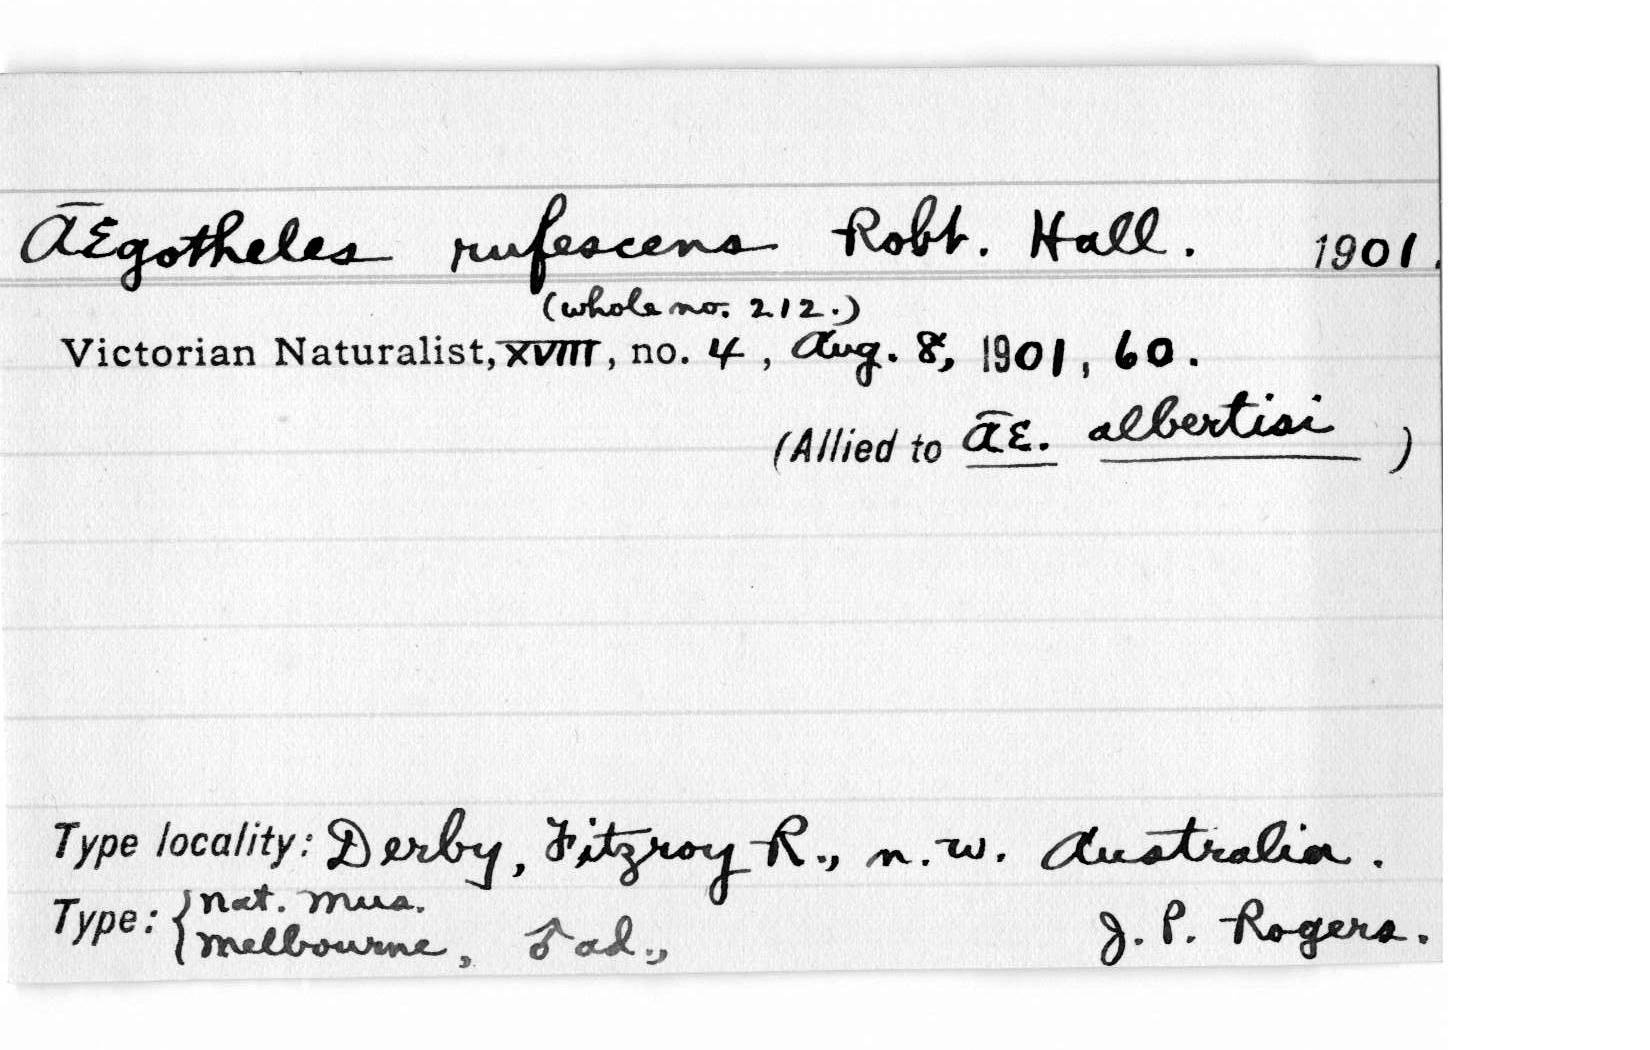 Ægotheles rufescens Robt. Hall. 1901.
(whole no. 212.)
Victorian Naturalist, XVIII, no. 4, Aug. 8, 1901, 60.
(Allied to Æ. albertisi )
Type locality: Derby, Fitzroy R., n.w. Australia.
Type: { Nat. Mus.
Melbourne, ♂ ad., J. P. Rogers.